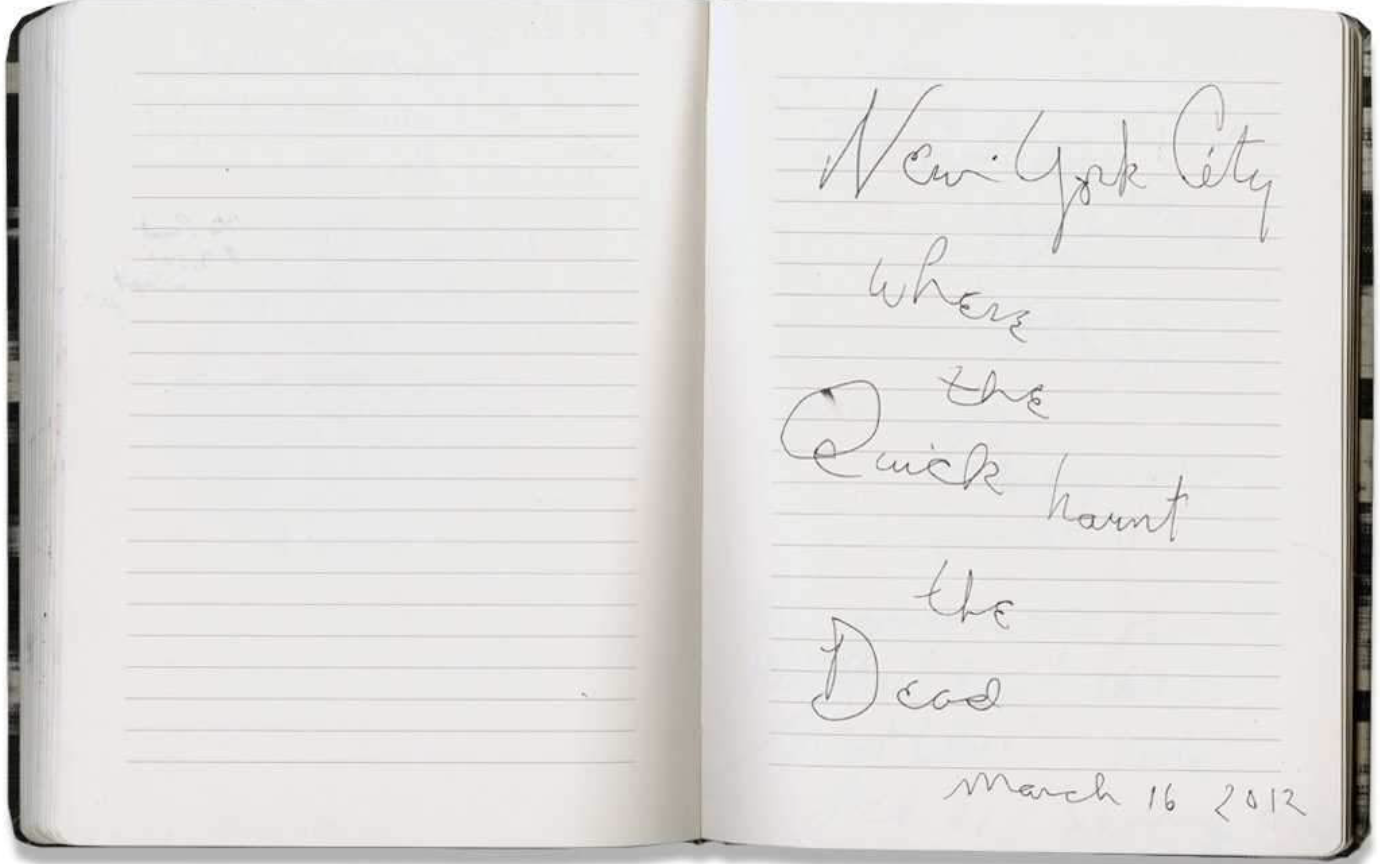 New York City
where
the
Quick haunt
the
Dead
March 16 2012